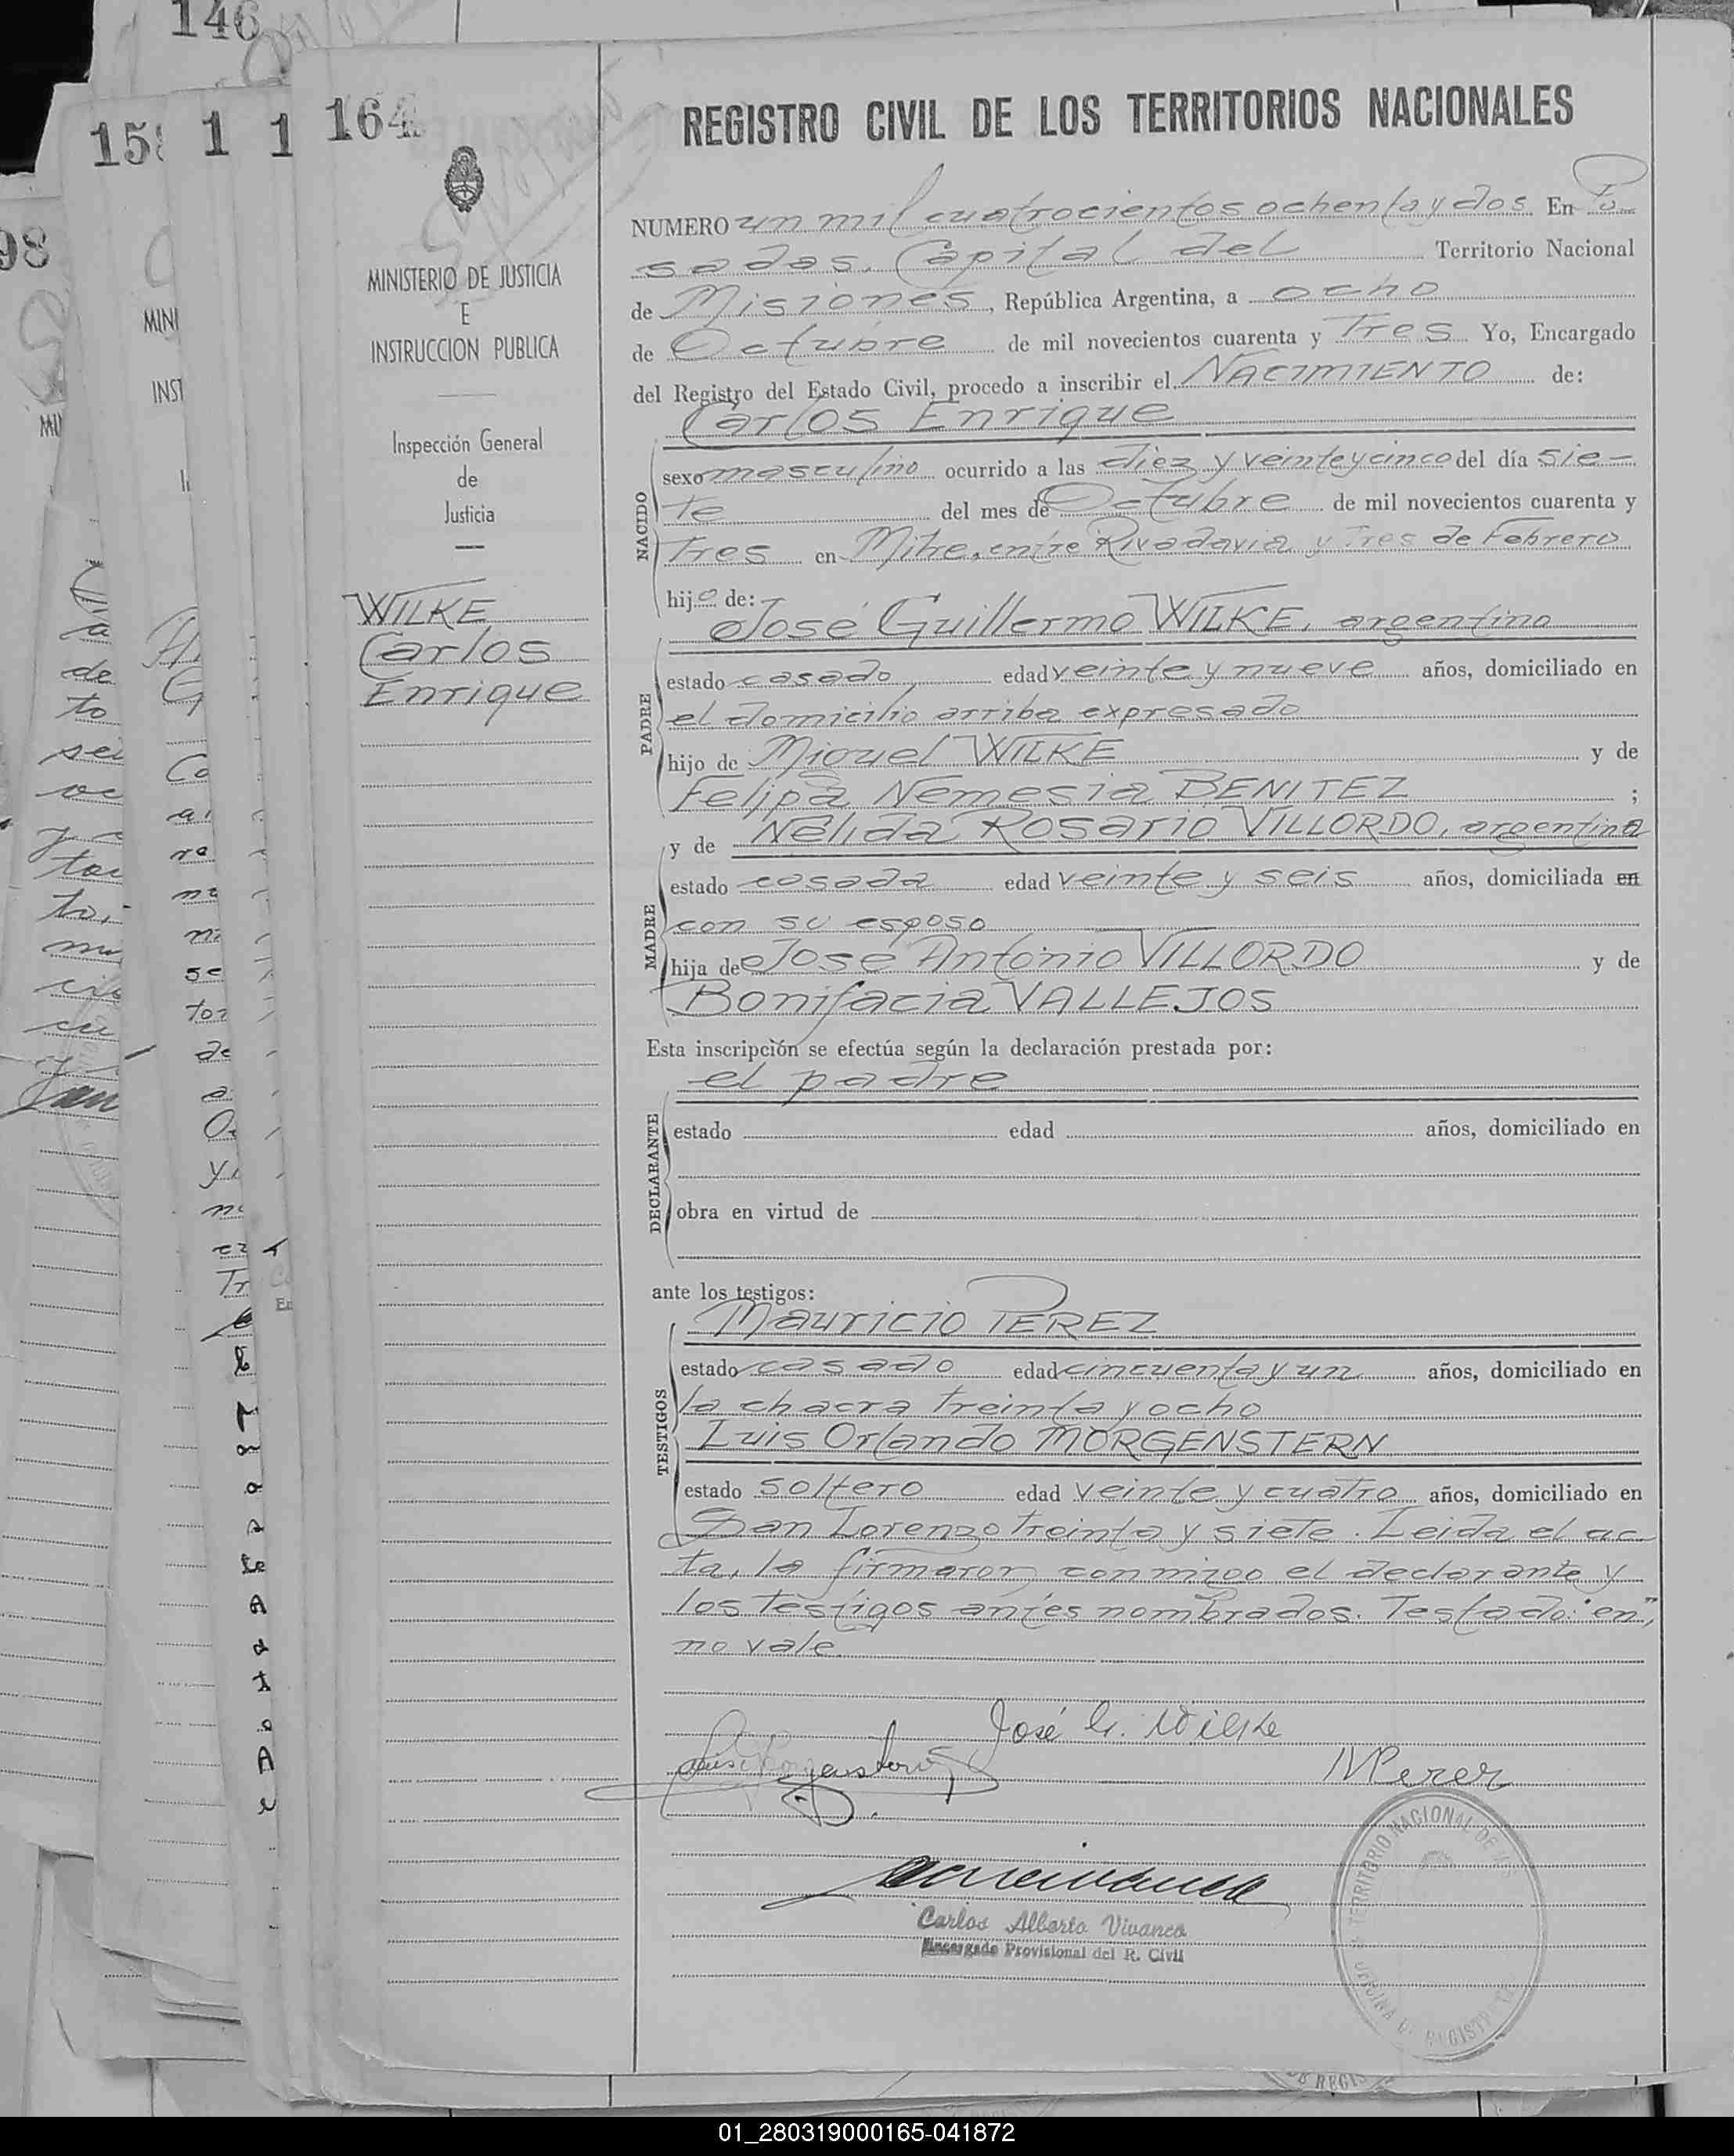 146
158
1
1
164
98
REGISTRO CIVIL DE LOS TERRITORIOS NACIONALES
MINISTERIO DE JUSTICIA
E
INSTRUCCION PUBLICA
Inspección General
de
Justicia
WILKE
Carlos
Enrique
NUMERO un mil cuatrocientos ochenta y dos En Po-
sadas, Capital del Territorio Nacional
de Misiones, República Argentina, a ocho
de Octubre de mil novecientos cuarenta y Tres Yo, Encargado
del Registro del Estado Civil, procedo a inscribir el NACIMIENTO de:
Carlos Enrique
NACIDO
sexo masculino ocurrido a las diez y veinteycinco del día sie-
te del mes de Octubre de mil novecientos cuarenta y
Tres en Mitre, entre Rivadavia y Tres de Febrero
hijo de:
José Guillermo WILKE, argentino
PADRE
estado casado edad veinte y nueve años, domiciliado en
el domicilio arriba expresado
hijo de Miguel WILKE y de
Felipa Nemesia BENITEZ ;
y de Nélida Rosario VILLORDO, argentina
MADRE
estado casada edad veinte y seis años, domiciliada en
con su esposo
hija de José Antonio VILLORDO y de
Bonifacia VALLEJOS
Esta inscripción se efectúa según la declaración prestada por:
el padre
DECLARANTE
estado edad años, domiciliado en
obra en virtud de
ante los testigos:
Mauricio PEREZ
TESTIGOS
estado casado edad cincuenta y un años, domiciliado en
la chacra treinta y ocho
Luis Orlando MORGENSTERN
estado soltero edad veinte y cuatro años, domiciliado en
San Lorenzo treinta y siete. Leida el ac-
ta, la firmaron conmigo el declarante y
los testigos antes nombrados. Testado: "en",
no vale.
José G. Wilke
Luis Morgenstern
MPerez
Carlos Alberto Vivanco
Encargado Provisional del R. Civil
TERRITORIO NACIONAL DE MIS
OFICINA D REGISTR
01_280319000165-041872